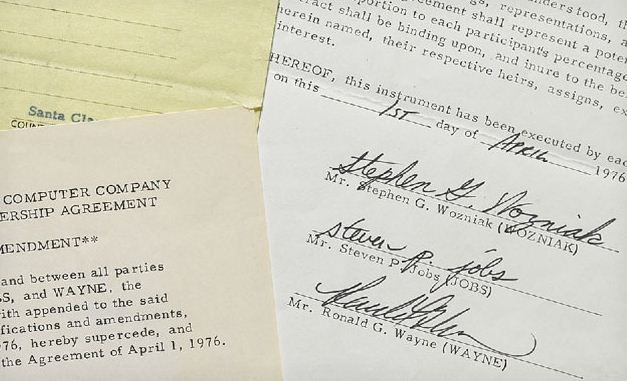 Santa Cla
COUN
COMPUTER COMPANY
ERSHIP AGREEMENT
MENDMENT**
and between all parties
BS, and WAYNE, the
ith appended to the said
fications and amendments,
76, hereby supercede, and
the Agreement of April 1, 1976.
representations, a
eement shall represent a poten
portion to each participant's percentage
ract shall be binding upon, and inure to the be
herein named, their respective heirs, assigns, ex
interest.
HEREOF, this instrument has been executed by eac
on this 1ST day of APRIL 1976
Stephen G. Wozniak
Mr. Stephen G. Wozniak (WOZNIAK)
steven P. jobs
Mr. Steven P. Jobs (JOBS)
Mr. Ronald G. Wayne (WAYNE)